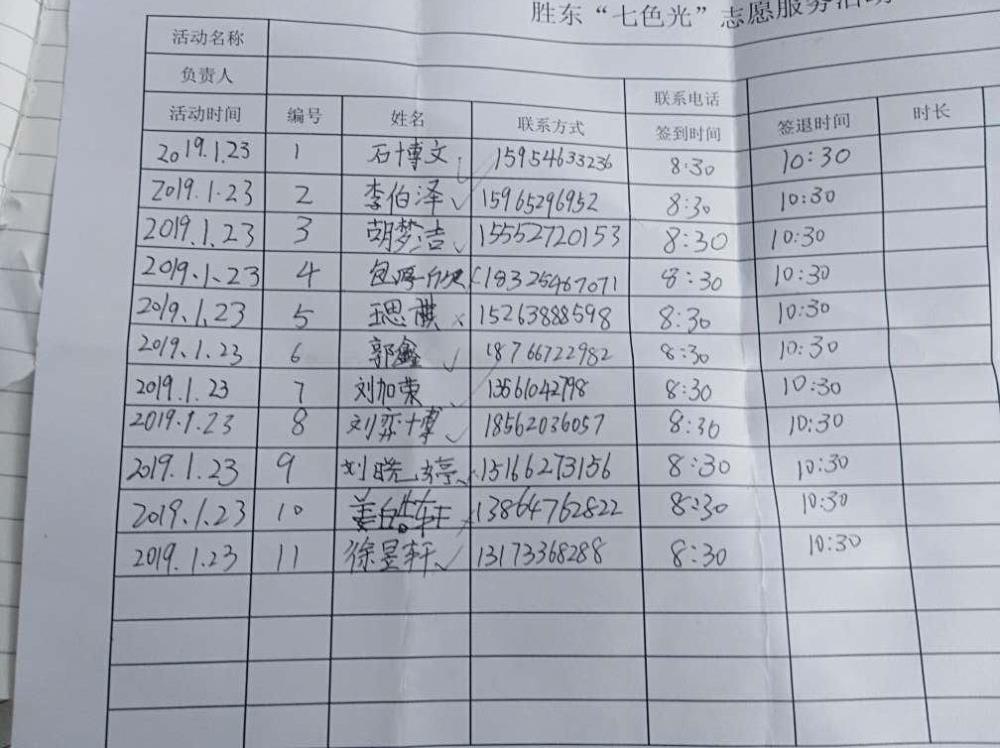 胜东“七色光”志愿服务活动
活动名称
负责人 联系电话
活动时间 编号 姓名 联系方式 签到时间 签退时间 时长
2019.1.23 1 石博文 15954633236 8:30 10:30
2019.1.23 2 李伯泽 15965296952 8:30 10:30
2019.1.23 3 胡梦洁 15552720153 8:30 10:30
2019.1.23 4 18325467071 8:30 10:30
2019.1.23 5 王思蘋 15263888598 8:30 10:30
2019.1.23 6 郭鑫 18766722982 8:30 10:30
2019.1.23 7 刘加荣 13561042798 8:30 10:30
2019.1.23 8 刘弈博 18562036057 8:30 10:30
2019.1.23 9 刘晓婷 15166273156 8:30 10:30
2019.1.23 10 13864762822 8:30 10:30
2019.1.23 11 徐昱轩 13173368288 8:30 10:30